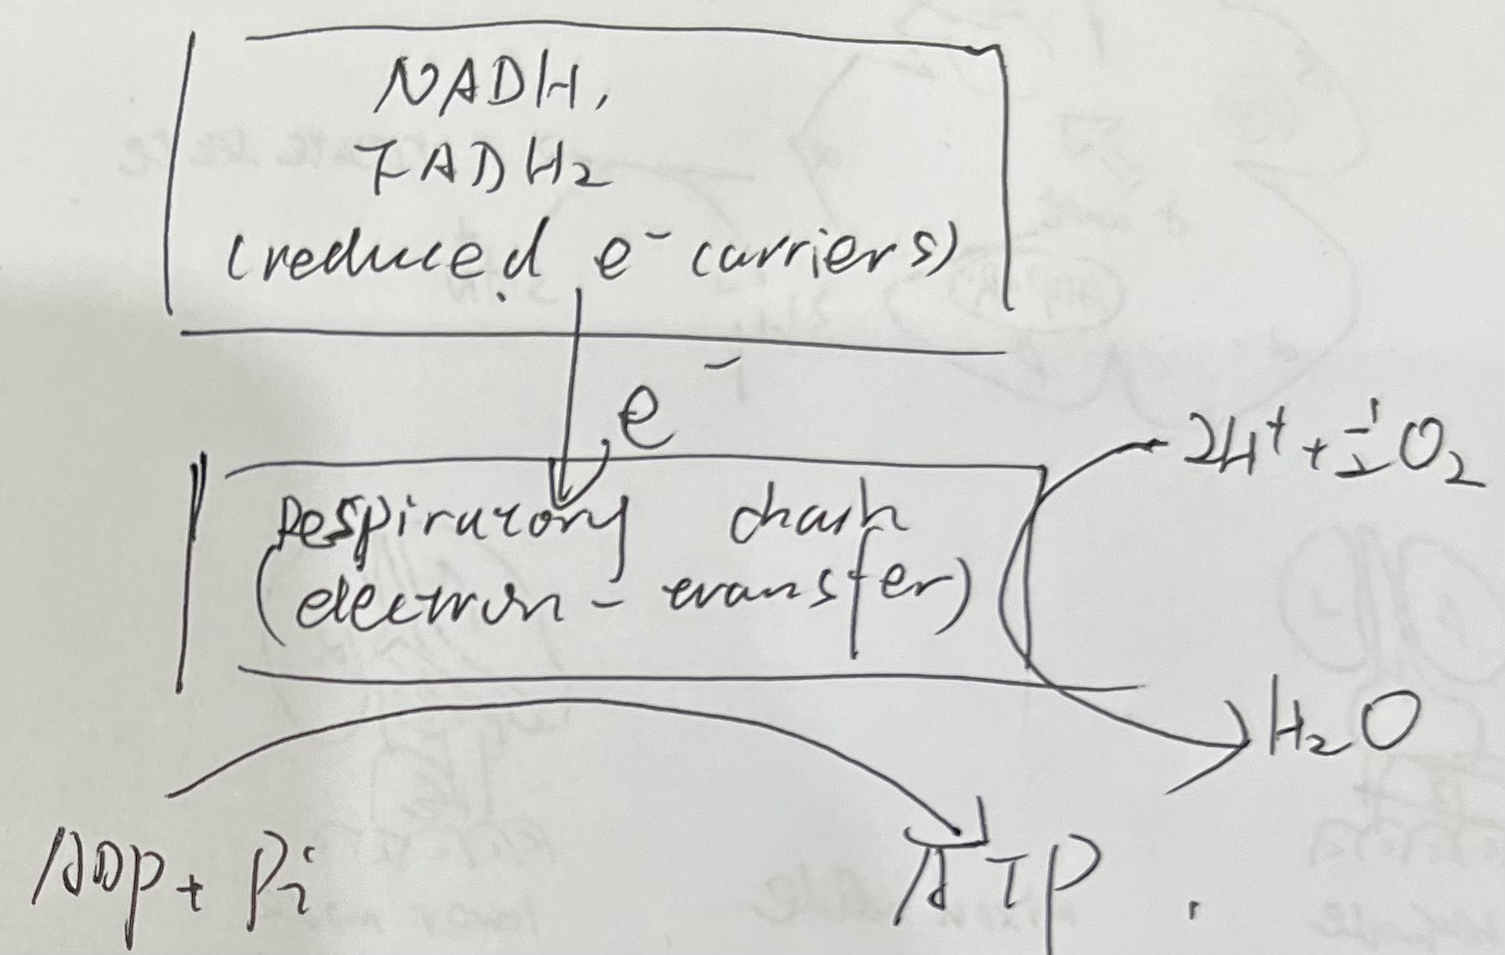 NADH,
FADH₂
(reduced e⁻ carriers)
e⁻
2H⁺ + ½ O₂
Respiratory chain
(electron-transfer)
H₂O
ADP + Pi
ATP.